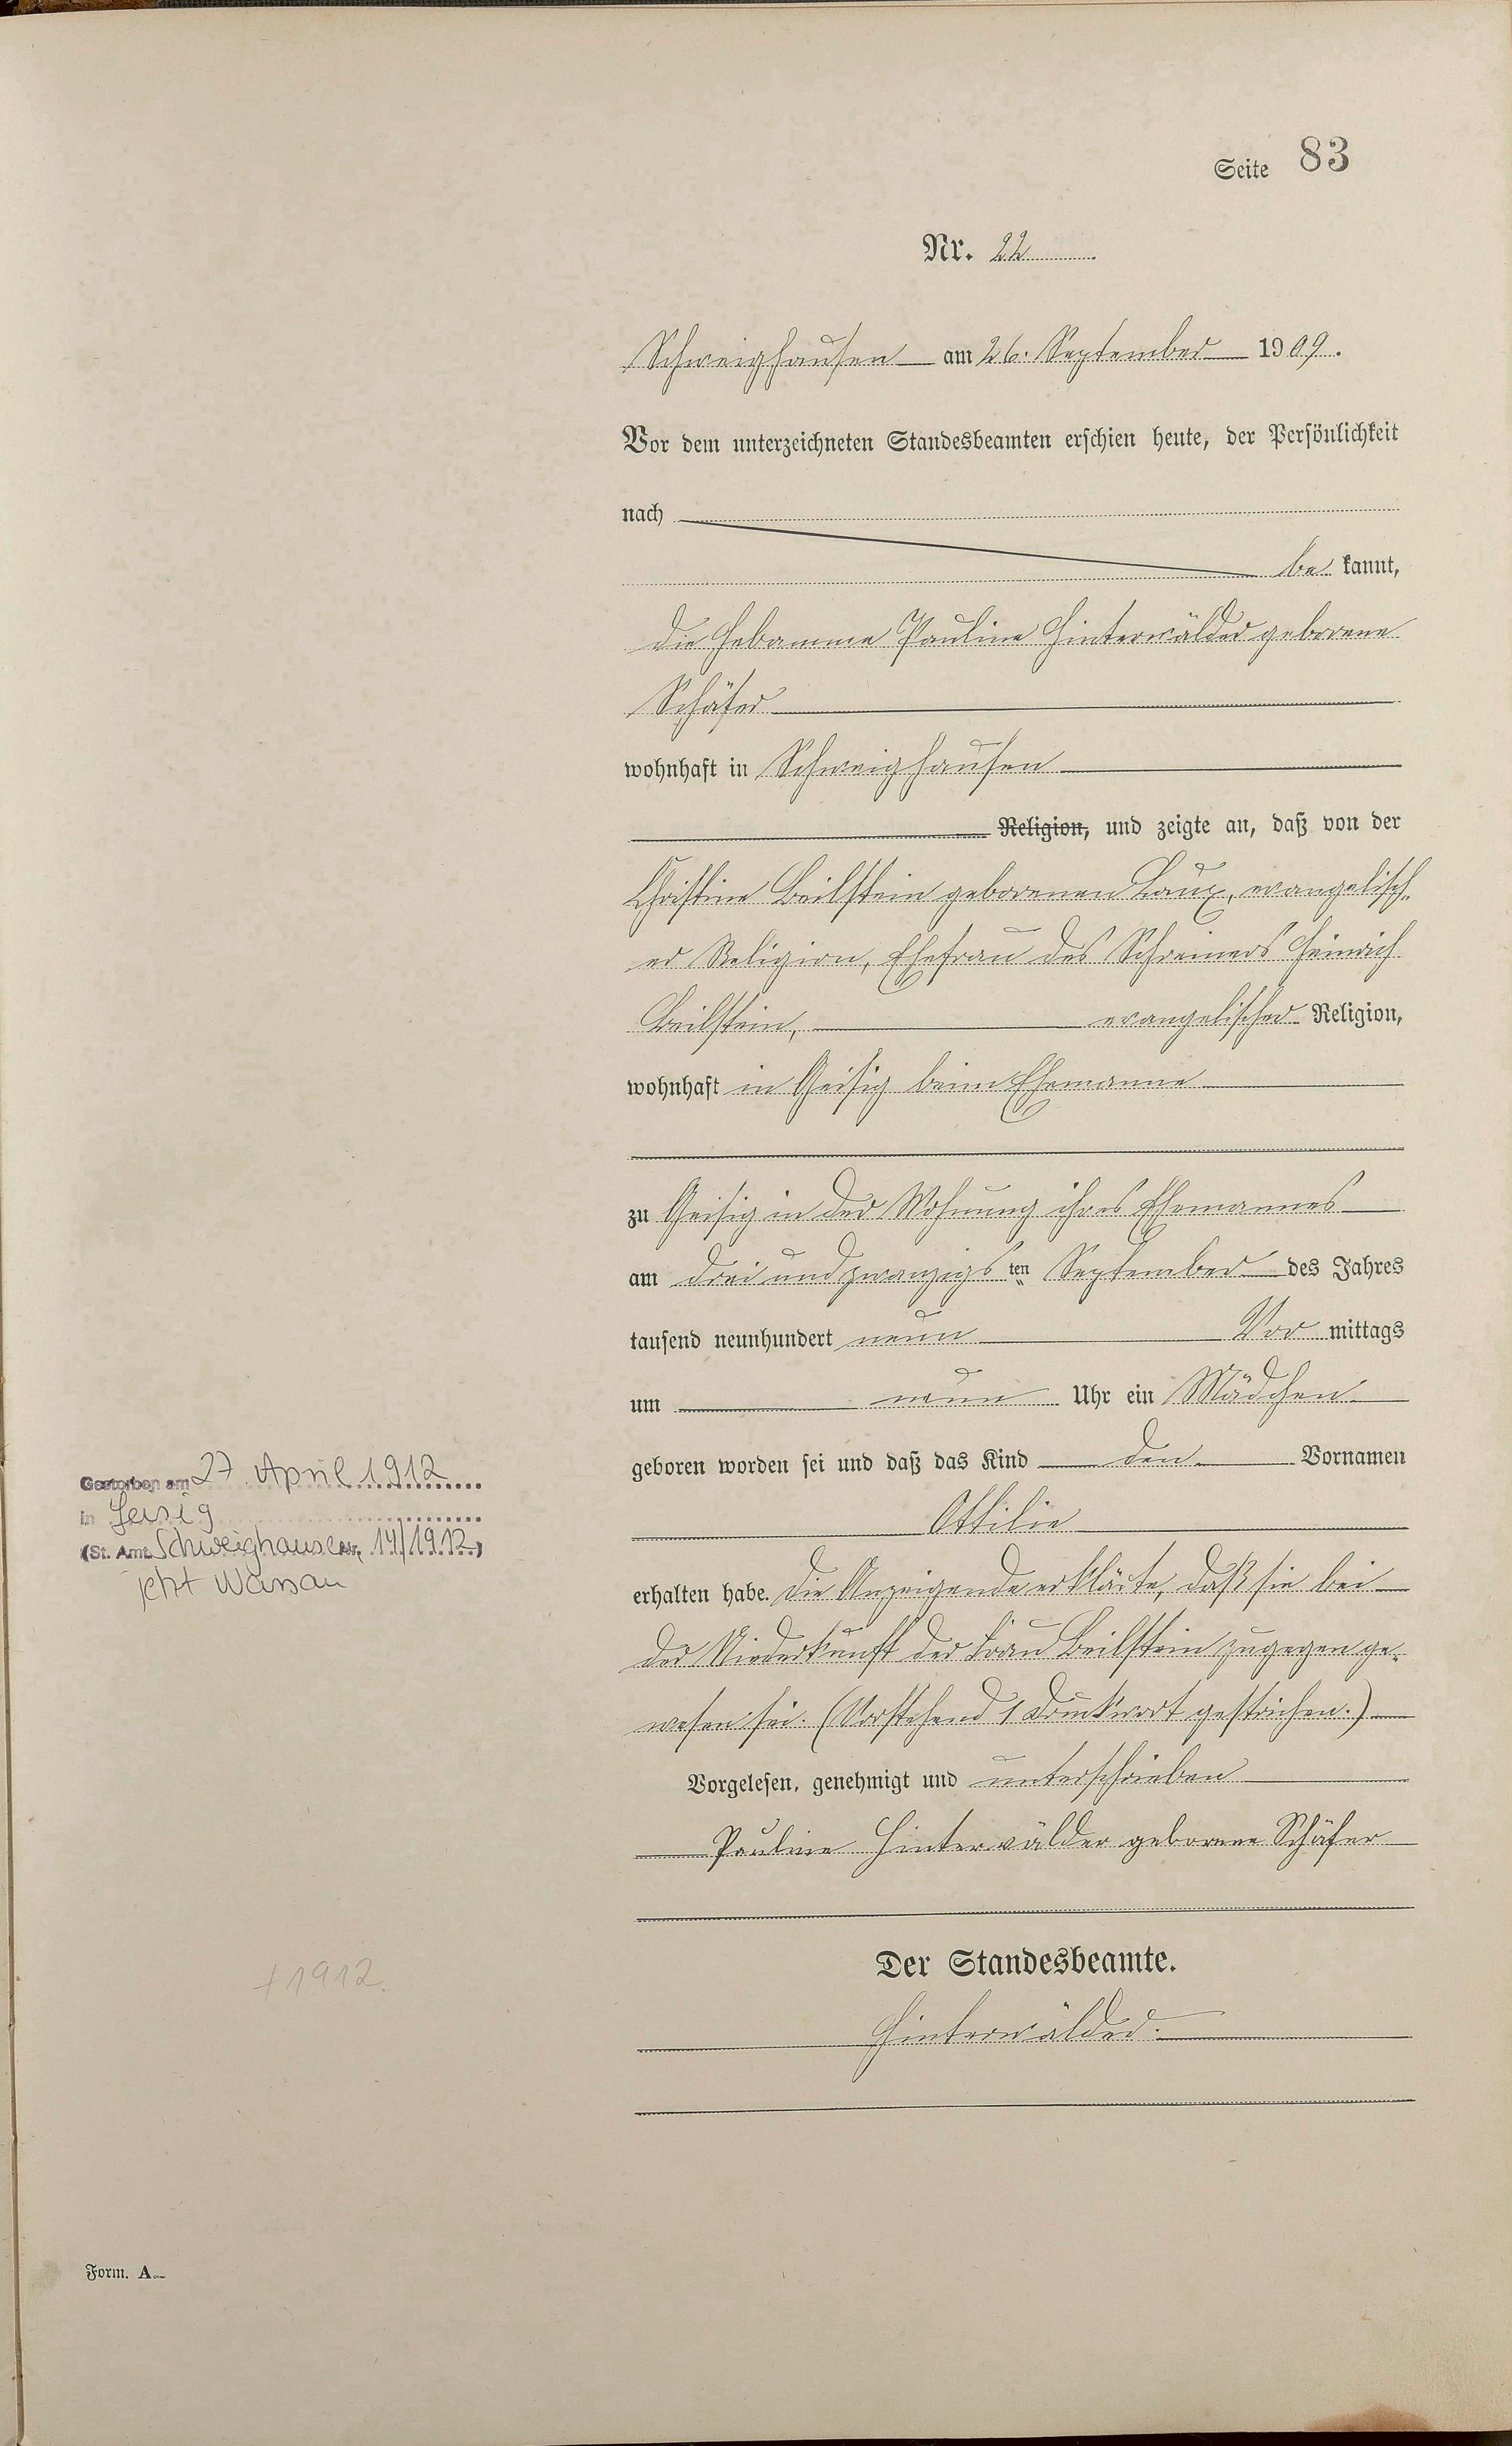 Seite 83
Nr. 22
Schweighausen am 26. September 1909.
Vor dem unterzeichneten Standesbeamten erschien heute, der Persönlichkeit
nach
be kannt,
die Hebamme Pauline Hinterwälder geborene
Schäfer
wohnhaft in Schweighausen
Religion, und zeigte an, daß von der
Christine Beilstein geborenen Laux, evangelisch-
er Religion, Ehefrau des Schreiners Heinrich
Beilstein, evangelischer Religion,
wohnhaft in Geisig beim Ehemanne
zu Geisig in der Wohnung ihres Ehemannes
am drei und zwanzigsten September des Jahres
tausend neunhundert neun Vor mittags
um neun Uhr ein Mädchen
geboren worden sei und daß das Kind den Vornamen
Ottilie
erhalten habe. Die Anzeigende erklärte, daß sie bei
der Niederkunft der Frau Beilstein zugegen ge-
wesen sei. (Vorstehend 1 Druckwort gestrichen.)
Vorgelesen, genehmigt und unterschrieben
Pauline Hinterwälder geborene Schäfer
Der Standesbeamte.
Hinterwälder.
Gestorben am 27. April 1912
in Geisig
(St. Amt Schweighausen Nr. 14/1912)
jetzt Nassau
+ 1912.
Form. A.